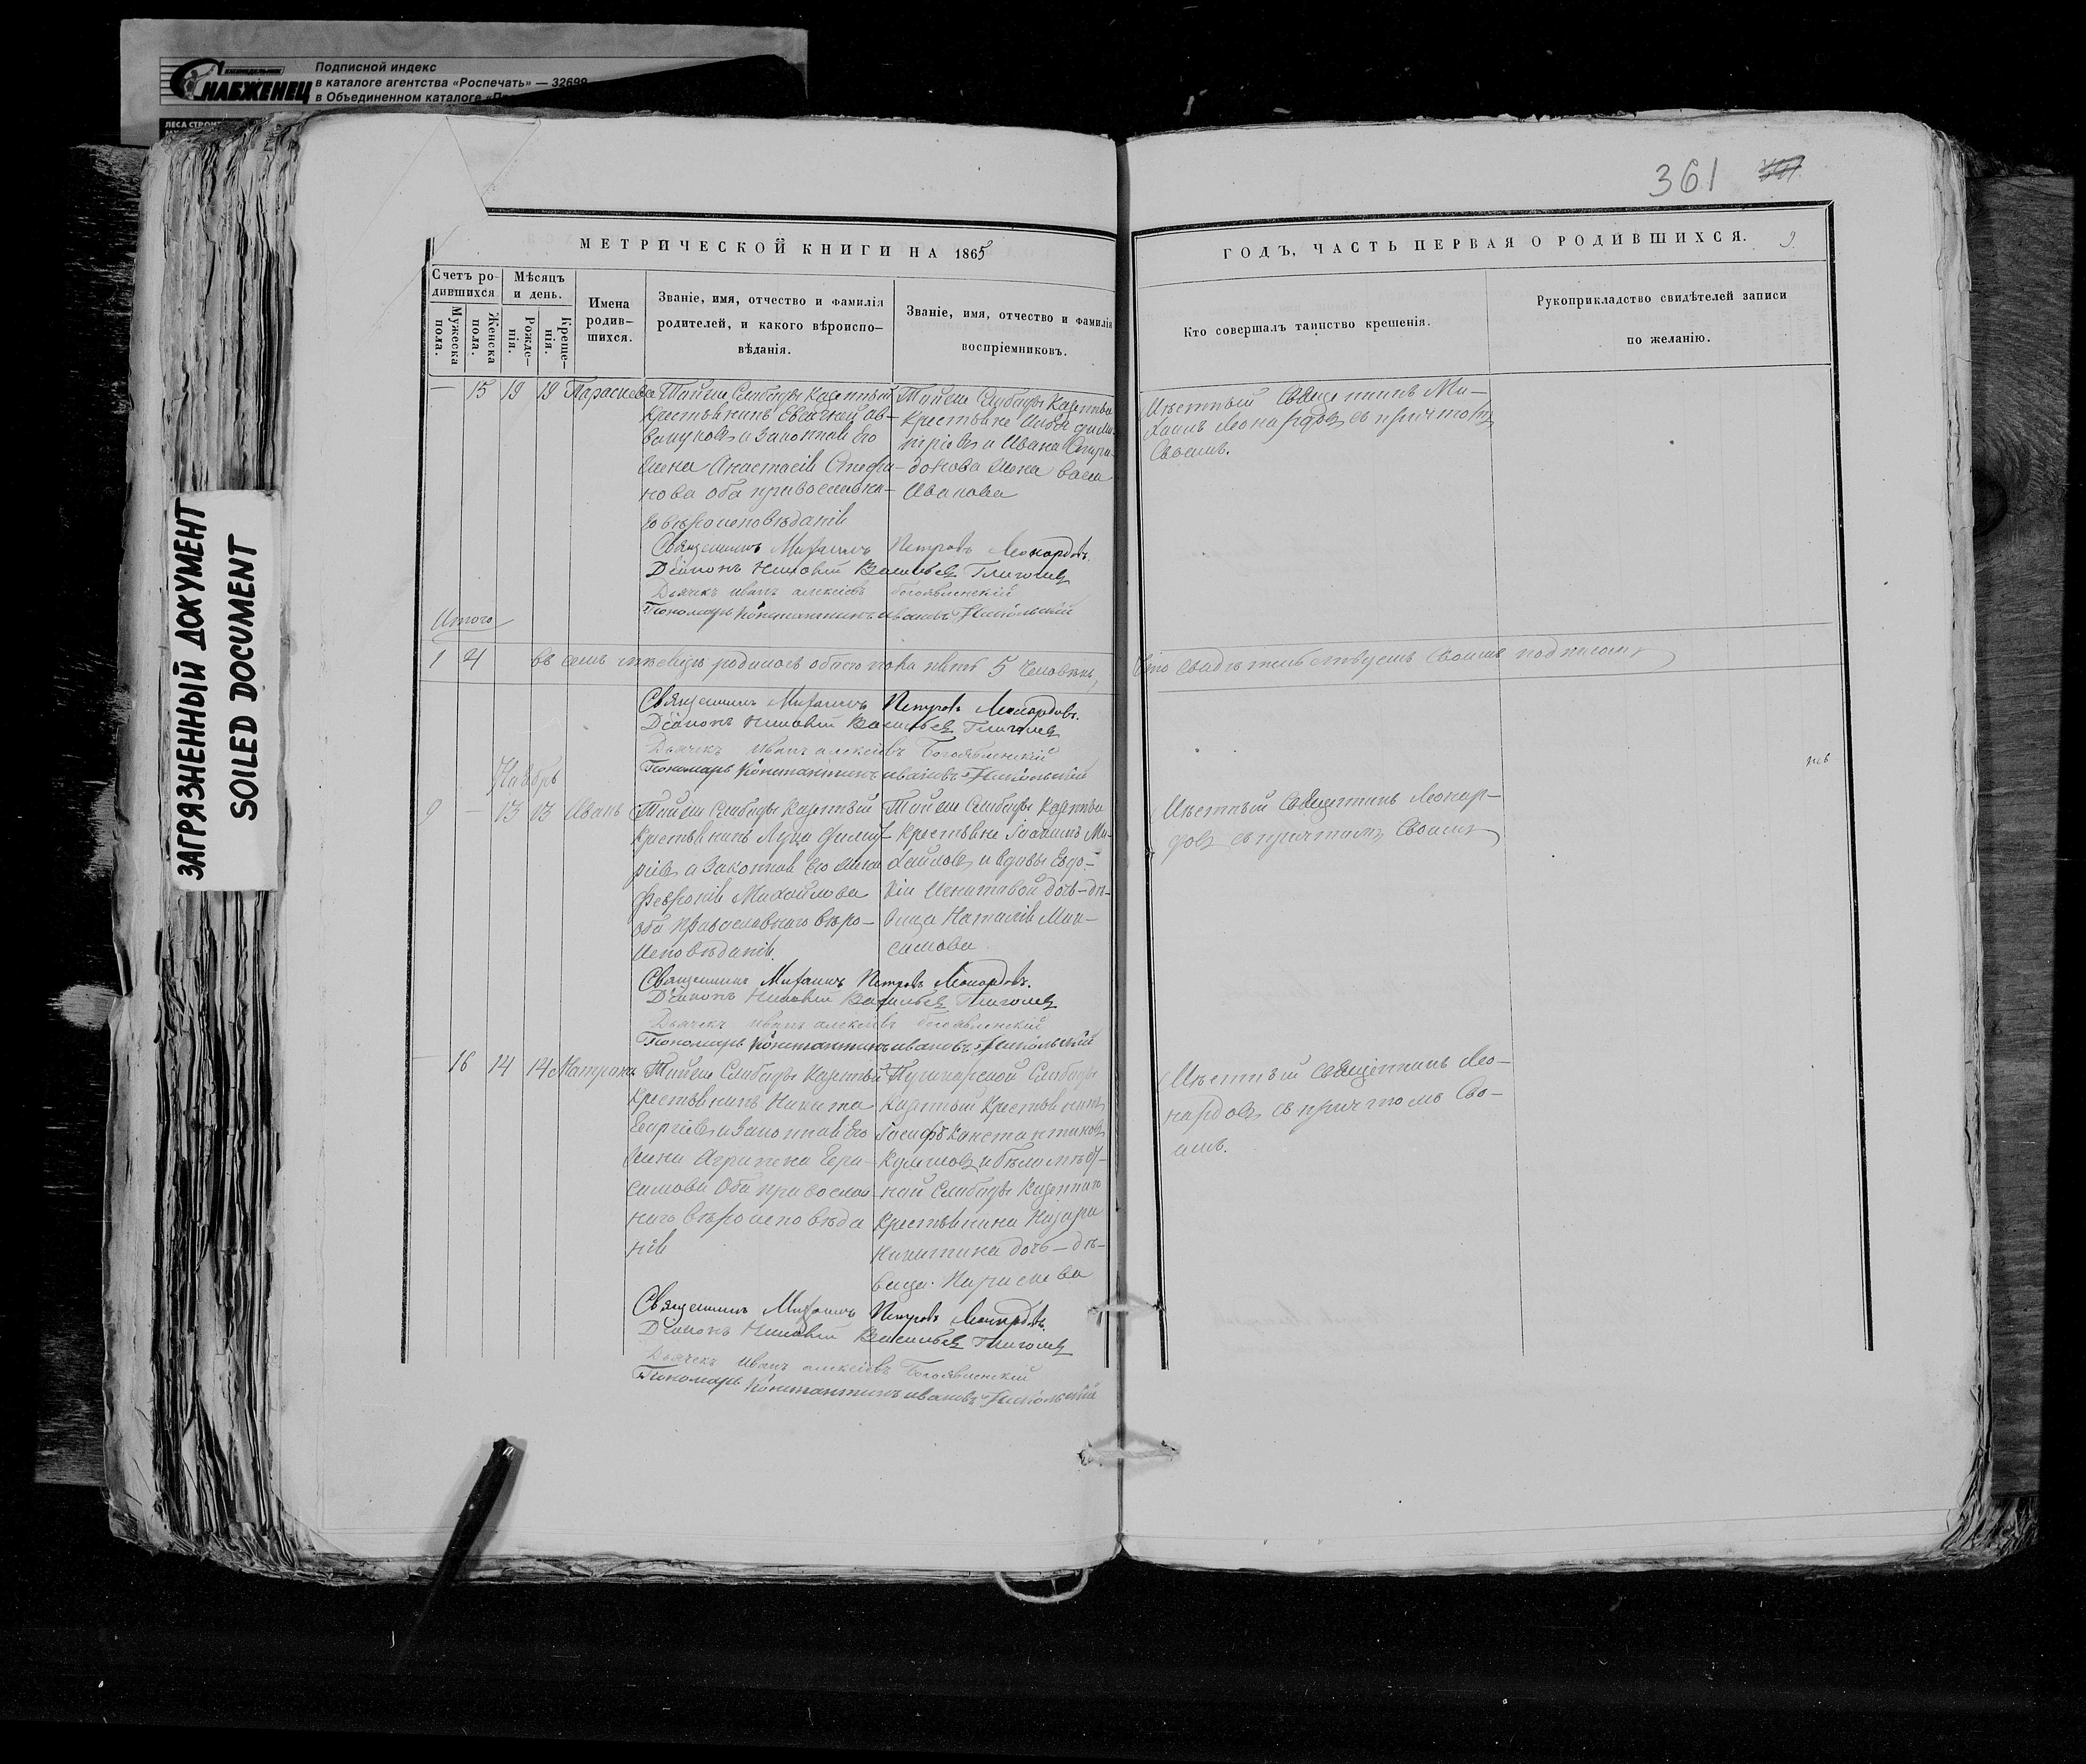 СНАБЖЕНЕЦ
ЕЖЕНЕДЕЛЬНИК
Подписной индекс
в каталоге агентства «Роспечать» — 32699
в Объединенном каталоге
ЗАГРЯЗНЕННЫЙ ДОКУМЕНТ
SOILED DOCUMENT
361
МЕТРИЧЕСКОЙ КНИГИ НА 1865
ГОДЪ, ЧАСТЬ ПЕРВАЯ О РОДИВШИХСЯ. 9.
Счетъ ро-
дившихся
Мужеска
пола.
Женска
пола.
Мѣсяцъ
и день.
Рожде-
нія.
Креще-
нія.
Имена
родив-
шихся.
Званіе, имя, отчество и фамилія
родителей, и какого вѣроиспо-
вѣданія.
Званіе, имя, отчество и фамилія
воспріемниковъ.
Кто совершалъ таинство крещенія.
Рукоприкладство свидѣтелей записи
по желанію.
— 15 19 19 Параскева
Тойже Слободы Казенный
Крестьянинъ
и Законная Его
Жена Анастасія Стефа-
нова оба православна-
го вѣроисповѣданія
Тойже Слободы Казенны
Крестьяне
и Ивана Спири-
донова жена
Иванова
Мѣстный Священникъ Ми-
хаилъ Леонардовъ съ причтомъ
Своимъ.
Священникъ Михаилъ Петровъ Леонардовъ.
Діаконъ Васильевъ Глаголевъ
Дьячекъ Иванъ Алексіевъ Богоявленскій
Пономарь Константинъ Ивановъ Никольскій
Итого
1 4 въ семъ мѣсяцѣ родилось обоего пола 5 Человѣкъ,
Что Свидѣтельствуемъ Своимъ подписомъ
Священникъ Михаилъ Петровъ Леонардовъ.
Діаконъ Васильевъ Глаголевъ
Дьячекъ Иванъ Алексіевъ Богоявленскій
Пономарь Константинъ Ивановъ Никольскій
Ноябрь
9 — 13 13 Иванъ
Тойже Слободы Казенный
Крестьянинъ Лука Димит-
ріевъ и Законная Его жена
Февронія Михайлова
оба православнаго вѣро-
исповѣданія.
Тойже Слободы Казенны
Крестьяне Іоаннъ Ми-
хайловъ и вдовы Евдо-
кіи дочь-дѣ-
вица Наталія Мак-
симова
Мѣстный Священникъ Леонар-
довъ съ причтомъ Своимъ
Священникъ Михаилъ Петровъ Леонардовъ.
Діаконъ Васильевъ Глаголевъ
Дьячекъ Иванъ Алексіевъ Богоявленскій
Пономарь Константинъ Ивановъ Никольскій
— 16 14 14 Матрона
Тойже Слободы Казенный
Крестьянинъ Никита
Георгіевъ и Законная Его
Жена Агрипена Гера-
симова Оба православ-
наго вѣроисповѣда
нія
Пушкарской Слободы
Казенный Крестьянинъ
Іосифъ Константиновъ
и Бѣломѣст-
ной Слободы Казеннаго
Крестьянина Назара
Никитина дочь-дѣ-
вица Параскева
Мѣстный Священникъ Лео-
нардовъ съ причтомъ Сво-
имъ.
Священникъ Михаилъ Петровъ Леонардовъ.
Діаконъ Васильевъ Глаголевъ
Дьячекъ Иванъ Алексіевъ Богоявленскій
Пономарь Константинъ Ивановъ Никольскій